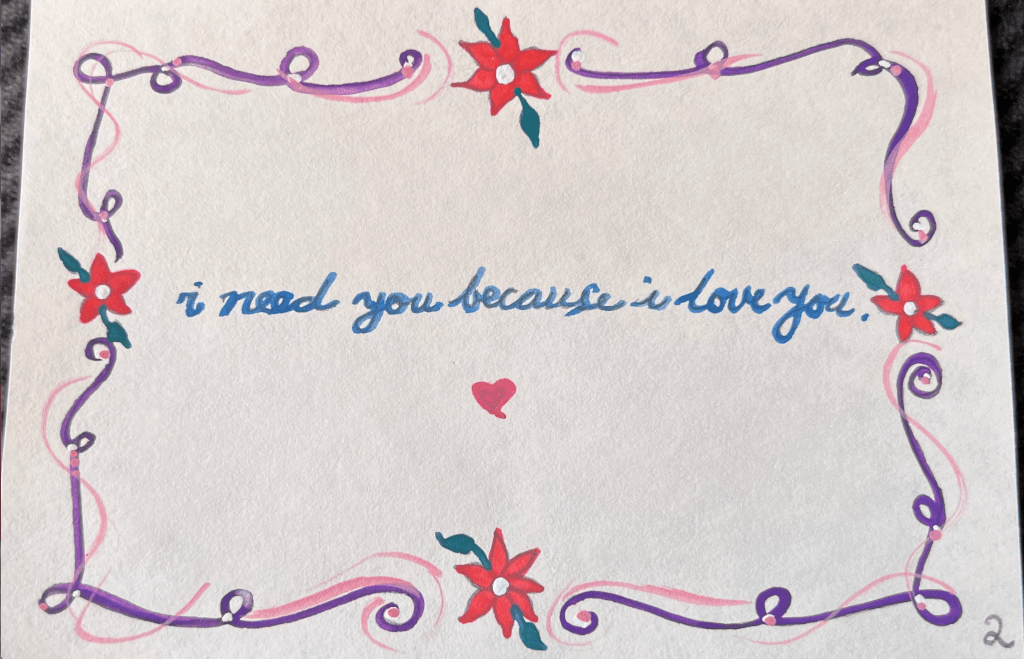 i need you because i love you.
2